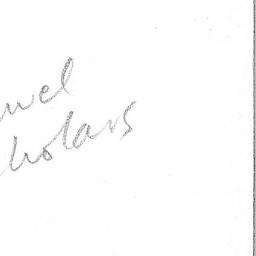 uel
holars